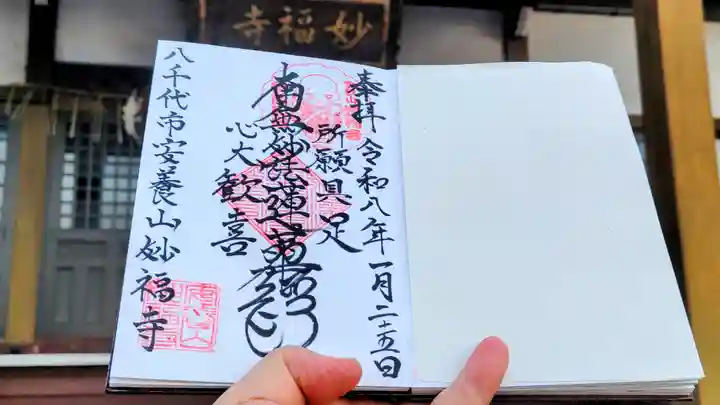 妙福寺
奉拝 令和八年一月二十五日
所願具足
南無妙法蓮華経
心大歓喜
八千代市安養山妙福寺